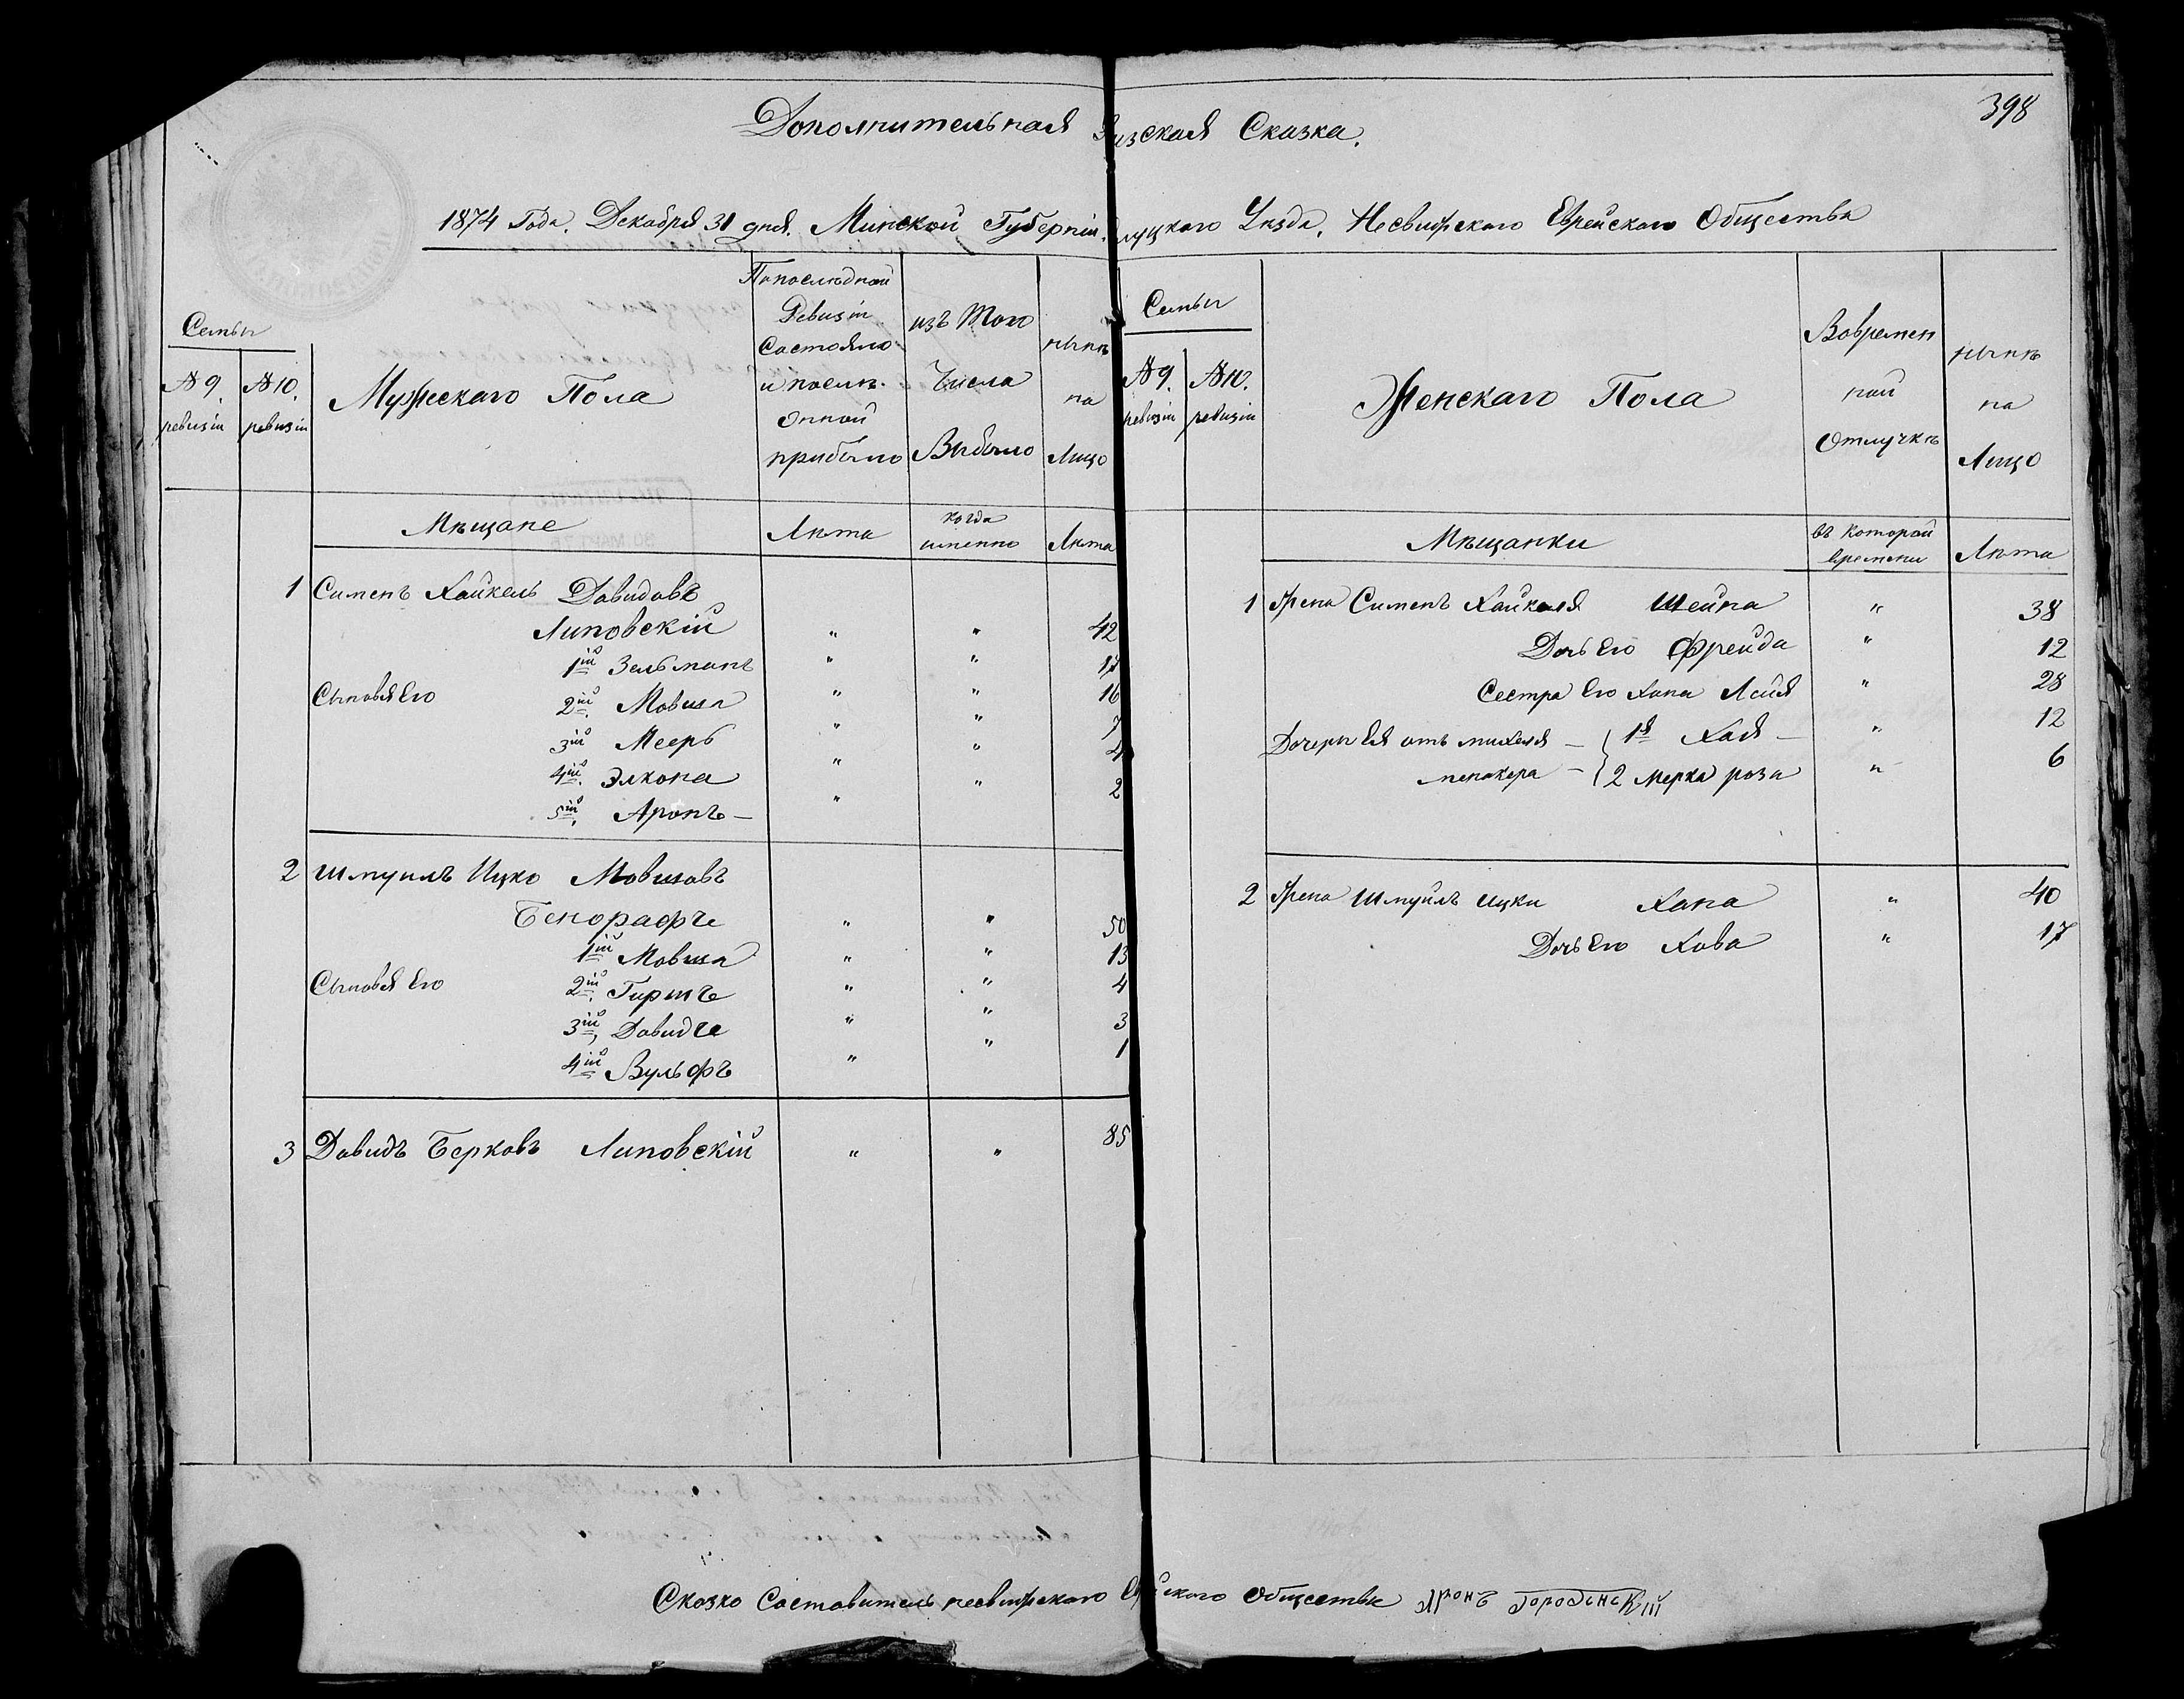 398
Дополнительная изская Сказка.
1874 Года. Декабря 31 дня. Минской Губерніи. луцкаго Уѣзда. Несвижскаго Еврейскаго Общества
Семьи
№ 9. ревизіи
№ 10. ревизіи
Мужескаго Пола
По последной
Ревизіи
Состояло
и послѣ
оной
прибыло
изъ Того
Числа
Выбыло
нынѣ
на
Лицо
Мѣщане
Лѣта
когда
именно
Лѣта
1 Сименъ Хайкель Давидовъ
Липовскій " " 42
Сыновья Его
1ій Зельманъ " " 17
2ій Мовша " " 16
3ій Мееръ " " 7
4ій Элкона " " 4
5ій Аронъ " " 2
2 Шмуилъ Ицко Мовшовъ
Бенорафъ " " 50
Сыновья Его
1ій Мовша " " 13
2ій Гиршъ " " 4
3ій Давидъ " " 3
4ій Вульфъ " " 1
3 Давидъ Берковъ Липовскій " " 85
Семьи
№ 9. ревизіи
№ 10. ревизіи
Женскаго Пола
Вовремен
ной
Отлучкѣ
нынѣ
на
Лицо
Мѣщанки
въ которой
времени
Лѣта
1 Жена Сименъ Хайкеля Шейна " 38
Дочь Его Фрейда " 12
Сестра Его Хана Лейя " 28
Дочеры Ея отъ михеля 1я Хая " 12
пенакера 2 мерка роза " 6
2 Жена Шмуилъ ицки Хана " 40
Дочь Его Хова " 17
Сказко Составитель несвижскаго скаго Общества Аронъ Городенскій